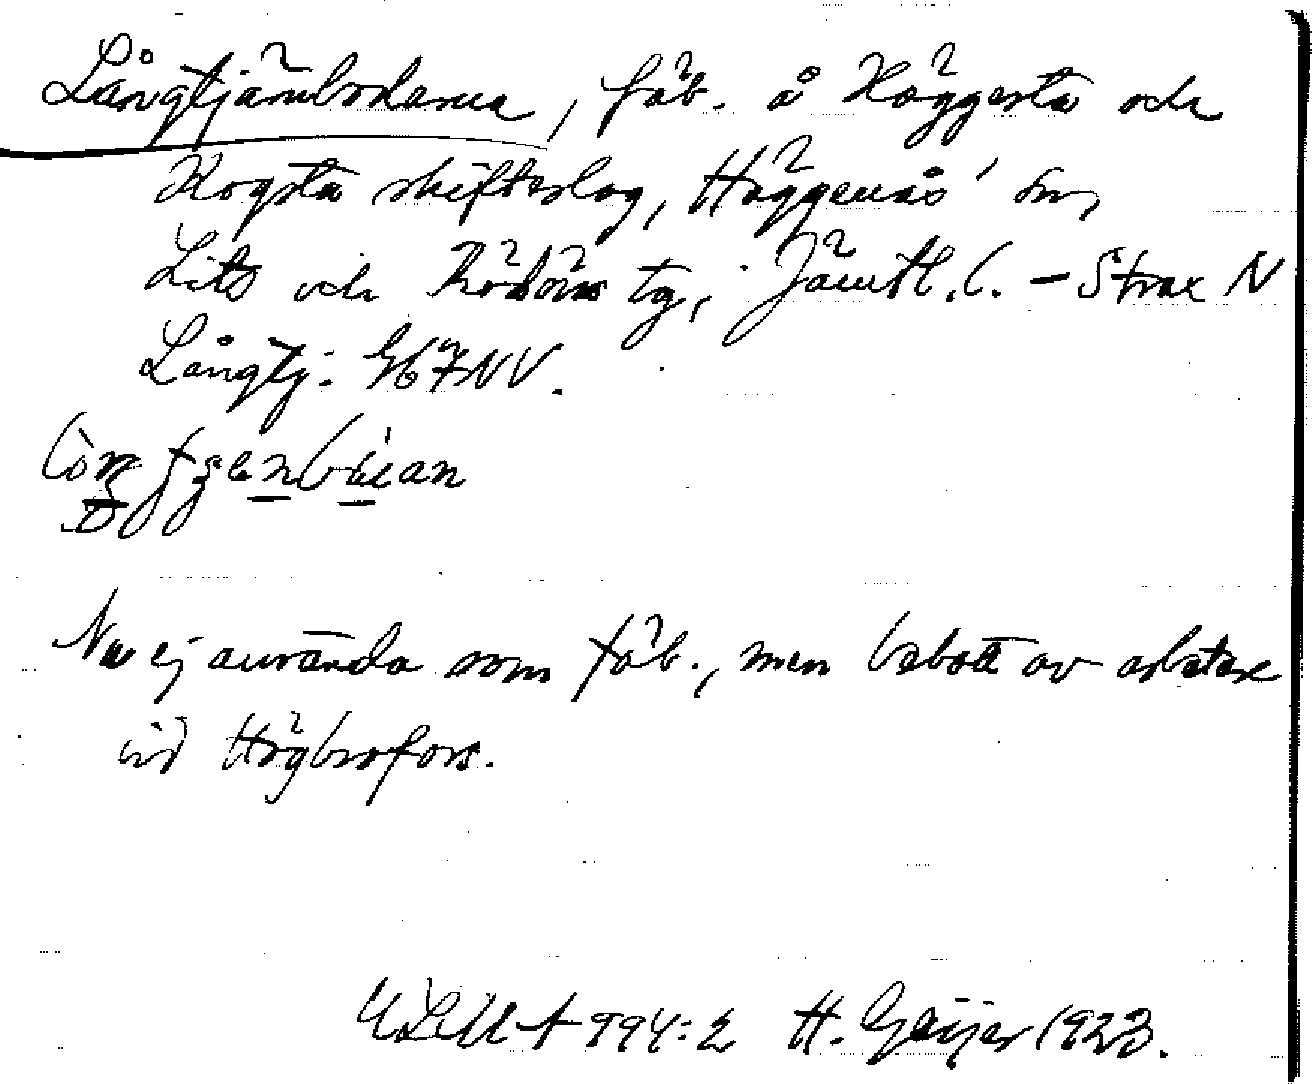 Långtjärnbodarna, fäb. å Häggesta och
Kogsta skifteslag, Häggenås' sn,
Lits och Rödöns tg, Jämtl. l. – Strax N
Långtj. 967NV.
Nu ej använda som fäb., men bebott av arbetare
vid Högbrofors.
ULMA 994:2 H. Geijer 1923.